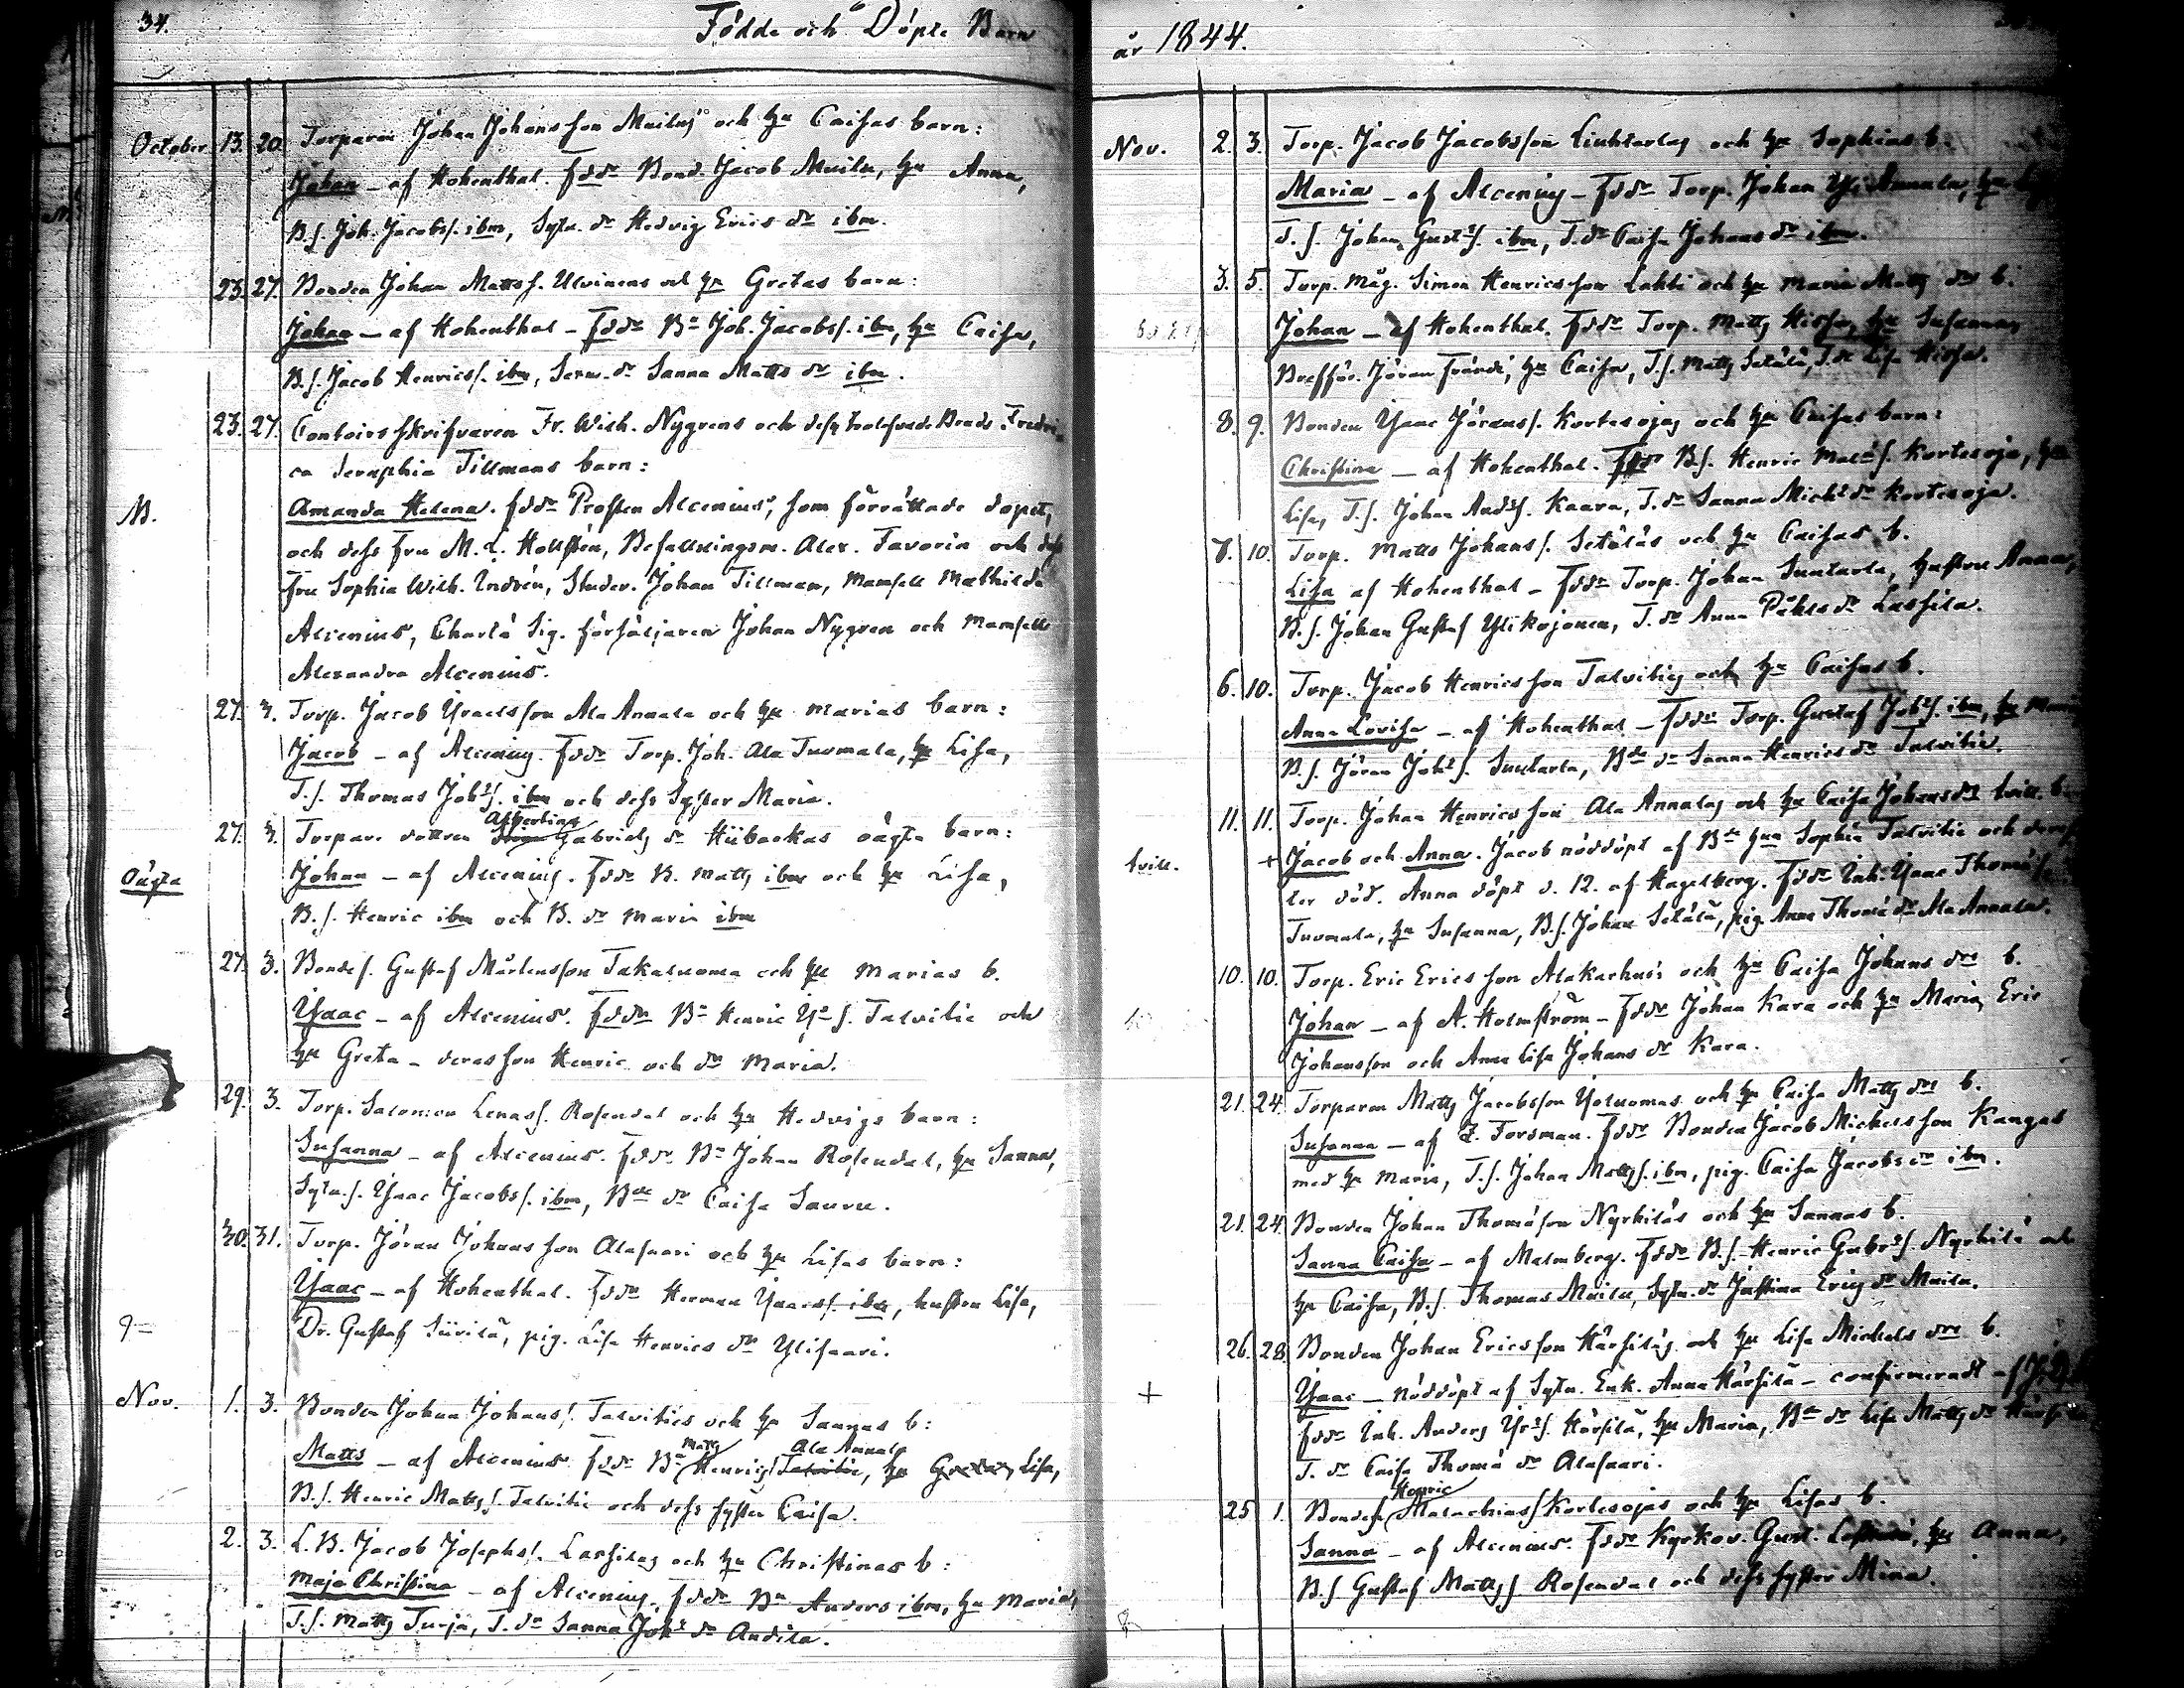 34. Födde och Döpte Barn
October 13. 20. Torparen Johan Johansson Muilus och hu Caisas barn:
Johan – af Hohenthal. fddr Bond. Jacob Muilu, hu Anna,
B.s. Joh. Jacobss. ibm, Sytn. dr Hedvig Erics dr ibm.
23. 27. Bonden Johan Mattss. Ulvinens och hu Gretas barn:
Johan – af Hohenthal – fddr Bn Joh. Jacobss. ibm, hu Caisa,
B.s. Jacob Henricss. ibm, dr Sanna Matts dr ibm.
23. 27. Contoirs skrifvaren Fr. Wilh. Nygrens och dess Fredri-
ca Seraphia Tillmans barn:
N. Amanda Helena. fddr Prosten Alcenius, som förrättade dopet,
och dess fru M. L. Hollsten, Befallningsm. Alex. Favorin och dess
fru Sophia Wilh. Indrén, Studer. Johan Tillman, Mamsell Mathilda
Alcenius, Charta Sig. försäljaren Johan Nygren och Mamsell
Alexandra Alcenius.
27. 3. Torp. Jacob Israelsson Ala Annala och hu Marias barn:
Jacob – af Alcenius. fddr Torp. Joh. Ala Tuomala, hu Lisa,
T.s. Thomas Johs s. ibm och dess Syster Maria.
Albertina
27. 3. Torpare dottren Gabriels dr Hiibackas oägta barn:
Oägta Johan – af Alcenius. fddr B. Matts ibm och hu Lisa,
B.s. Henric ibm och B. dr Maria ibm
27. 3. Bondes. Gustaf Mårtensson Takaluoma och hu Marias b.
Isaac – af Alcenius. fddr Bn Henric Is s. Talvitie och
hu Greta – deras son Henric och dr Maria.
29. 3. Torp. Salomon Lenass. Rosendal och hu Hedvigs barn:
Susanna – af Alcenius. fddr Bn Johan Rosendal, hu Sanna,
Sytn.s. Isaac Jacobss. ibm, Bde dr Caisa Sauru.
30. 31. Torp. Jöran Johansson Alasaari och hu Lisas barn:
Isaac – af Hohenthal. fddr Herman Isaacss. ibm, hustru Lisa,
Dr. Gustaf Siirilä, pig. Lisa Henrics dr Ylisaari.
Nov. 1. 3. Bonden Johan Johanss. Talvities och hu Sannas b:
Matts Ala Annala
Matts – af Alcenius fddr Bn Henrics Talvitie, hu Greta, Lisa,
B.s. Henric Mattss. Talvitie och dess syster Caisa.
2. 3. L.B. Jacob Josephs s. Lassilas och hu Christinas b:
Maja Christina – af Alcenius. fddr Bn Anders ibm, hu Maria,
T.s. Matts Turja, T. dr Sanna Johs dr Andila.
år 1844.
Nov. 2. 3. Torp. Jacob Jacobsson Liuhtarlas och hu Sophias b.
Maria – af Alcenius – fddr Torp. Johan Yli Annala, hu
T.s. Johan Gusts s. ibm, T. dr Caisa Johans dr ibm.
3. 5. Torp. måg. Simon Henricsson Lahti och hu Maria Matts drs b.
Johan – af Hohenthal. fddr Torp. Matts Hissa, hu Susanna,
Bressför. Jöran Frändi, hu Caisa, T.s. Matts Setälä, T. dr Lisa Hissa.
8. 9. Bonden Isaac Jöranss. Kortesojas och hu Caisas barn:
Christina – af Hohenthal. fddr B.s. Henric Mal s. Kortesoja, hu
Lisa, T.s. Johan Ands s. Kaara, T. dr Sanna Michs dr Kortesoja.
7. 10. Torp. Matts Johans s. Setäläs och hu Caisas b.
Lisa af Hohenthal – fddr Torp. Johan Luutarla, hustru Anna,
B.s. Johan Gustaf Ylikojonen, T. dr Anna Påhls dr Lassila.
6. 10. Torp. Jacob Henricsson Talvities och hu Caisas b.
Anna Lovisa – af Hohenthal – fddr Torp. Gustaf Johs s. ibm, hu Maria
B.s. Jöran Johs s. Luutarla, Bde dr Sanna Henrics dr Talvitie.
11. 11. Torp. Johan Henricsson Ala Annalas och hu Caisa Johans drs tvill.
tvill. + Jacob och Anna. Jacob nöddöpt af Bde hun Sophia Talvitie och deref-
ter död. Anna döpt d. 12. af Hagelberg. fddr Inh. Isaac Thomä s.
Tuomala, hu Susanna, B.s. Johan Setälä, pig. Anna Thomä dr Ala Annala.
10. 10. Torp. Eric Ericsson Alakarhus och hu Caisa Johans drs b.
Johan – af A. Holmström – fddr Johan Kara och hu Maria, Eric
Johansson och Anna Lisa Johans dr Kara.
21. 24. Torparen Matts Jacobsson Yoluomas och hu Caisa Matts drs b.
Susanna – af Z. Forsman. fddr Bonden Jacob Michelsson Kangas
med hu Maria, T.s. Johan Matts s. ibm, pig. Caisa Jacobs dr ibm.
21. 24. Bonden Johan Thomäson Nyrhiläs och hu Sannas b.
Sanna Caisa – af Malmberg. fddr B.s. Henric Gabrs s. Nyrhilä och
hu Caisa, B.s. Thomas Muilu, Sytn. dr Justina Erics dr Muilu.
26. 28. Bonden Johan Ericsson Härsiläs och hu Lisa Michels drs b.
+ Isaac – nöddöpt af Sytn. Enk. Anna Härsilä – confirmeradt af
fddr Inh. Anders Isrs s. Härsilä, hu Maria, Bde dr Lisa Matts dr Härsilä
T. dr Caisa Thomä dr Alasaari.
Henric
25 1. Bondes. Malachias s. Kortesojas och hu Lisas b.
Sanna – af Alcenius. fddr Kyrkov. Gust. hu Anna,
B.s. Gustaf Matts s. Rosendal och dess syster Mina.